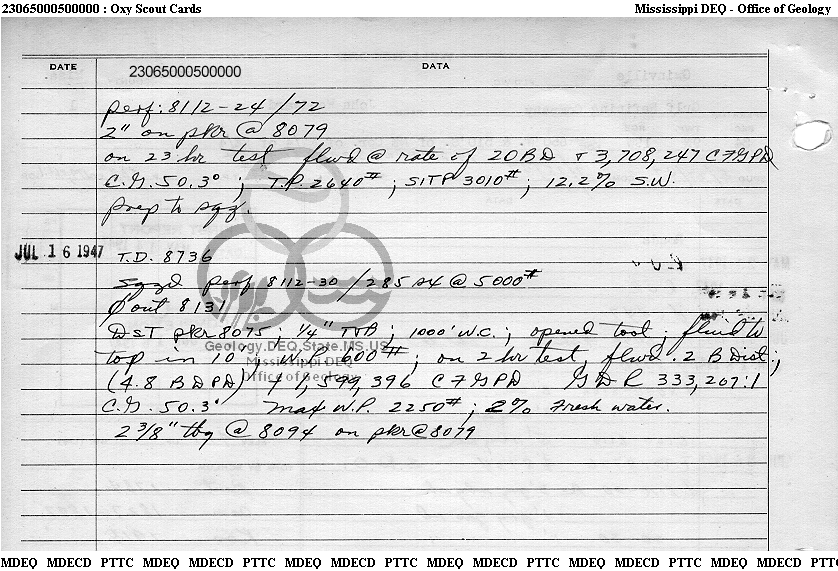 23065000500000 : Oxy Scout Cards
Mississippi DEQ - Office of Geology
DATE
23065000500000
DATA
perf: 8112-24/72
2" on pkr @ 8079
on 23 hr test flwd @ rate of 20 BD + 3,708,247 CFGPD
C.G. 50.3° ; T.P. 2640# ; SITP 3010# ; 12.2% S.W.
prep to sqz.
JUL 16 1947
T.D. 8736
sqzd perf 8112-30/285 sx @ 5000#
out 8131
DST pkr 8075 ; 1/4" T&B ; 1000' W.C. ; opened tool ; fluid to
top in 10" ; W.P. 600# ; on 2 hr test, flwd .2 B Dist ;
(4.8 BDPD) + 1,599,396 CFGPD GDR 333,207:1
C.G. 50.3° max W.P. 2250# ; 2% Fresh water.
2 3/8" tbg @ 8094 on pkr @ 8079
Geology.DEQ.State.MS.US
Mississippi DEQ
Office of Geology
MDEQ MDECD PTTC MDEQ MDECD PTTC MDEQ MDECD PTTC MDEQ MDECD PTTC MDEQ MDECD PTTC MDEQ MDECD PTTC